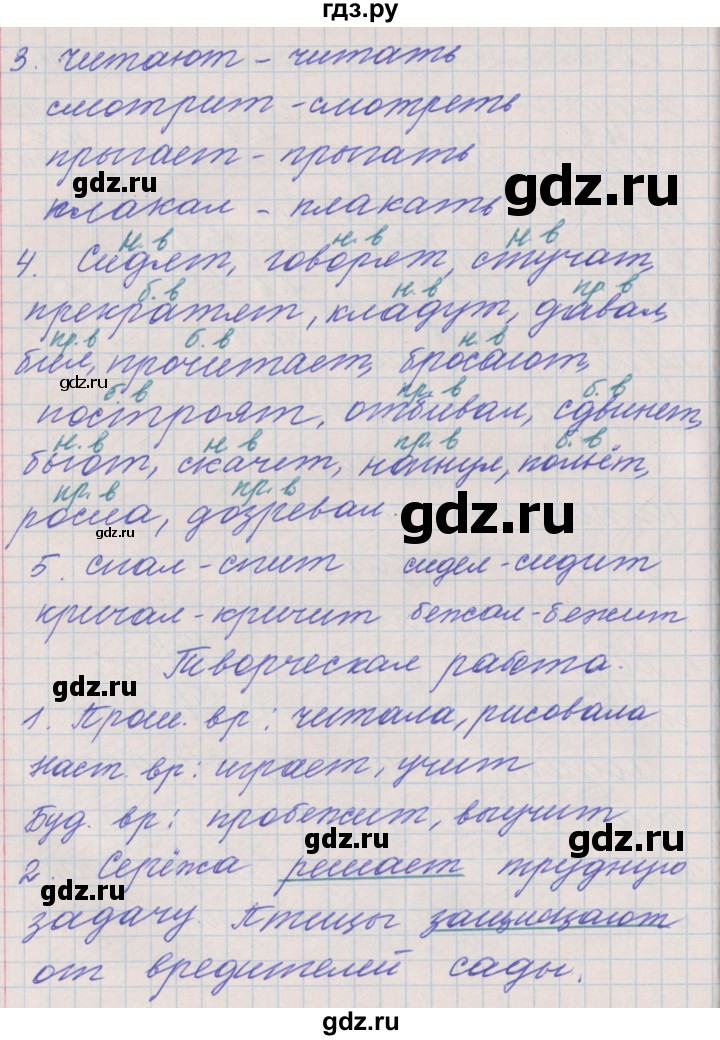 гдз.ру
3. читают - читать
смотрит - смотреть
прыгает - прыгать
gdz.ru
gdz.ru
плакал - плакать
н.в н.в н.в
4. Сидят, говорят, стучат,
б.в н.в пр.в
прекратят, кладут, давал,
пр.в б.в н.в
бил, прочитает, бросают,
gdz.ru
б.в пр.в б.в
построят, отбивал, сдвинет,
н.в н.в пр.в б.в
бьют, скачет, нагнул, польёт,
пр.в пр.в
росла, дозревал.
gdz.ru
gdz.ru
5. спал - спит сидел - сидит
кричал - кричит бежал - бежит
Творческая работа.
gdz.ru
1. Прош. вр: читала, рисовала
Наст. вр: играет, учит
Буд. вр: пробежит, выучит
gdz.ru
gdz.ru
2. Серёжа решает трудную
gdz.ru
задачу. Птицы защищают
от вредителей сады.
gdz.ru
gdz.ru